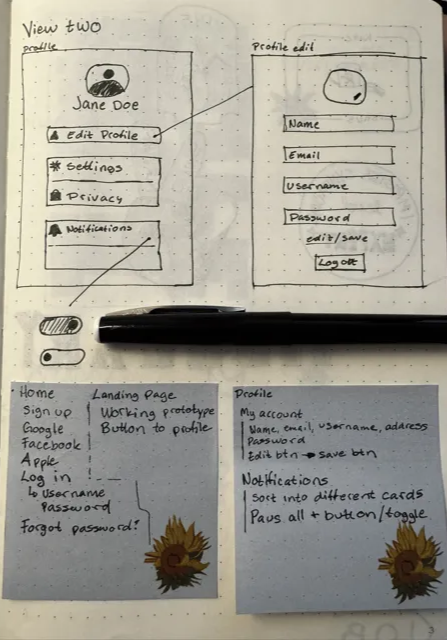 View two
Profile
Jane Doe
Edit Profile
Settings
Privacy
Notifications
Profile edit
Name
Email
Username
Password
edit/save
Log out
Home
Sign up
Google
Facebook
Apple
Log in
↳ Username
Password
Forgot password?
Landing Page
Working prototype
Button to profile
Profile
My account
Name, email, username, address
Password
Edit btn → save btn
Notifications
Sort into different cards
Paus all + button/toggle